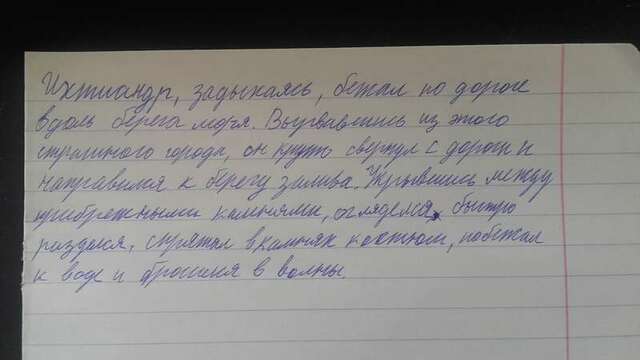 Ихтиандр, задыхаясь, бежал по дороге
вдоль берега моря. Вырвавшись из этого
страшного города, он круто свернул с дороги и
направился к берегу залива. Укрывшись между
прибрежными камнями, огляделся, быстро
разделся, спрятал в камнях костюм, побежал
к воде и бросился в волны.